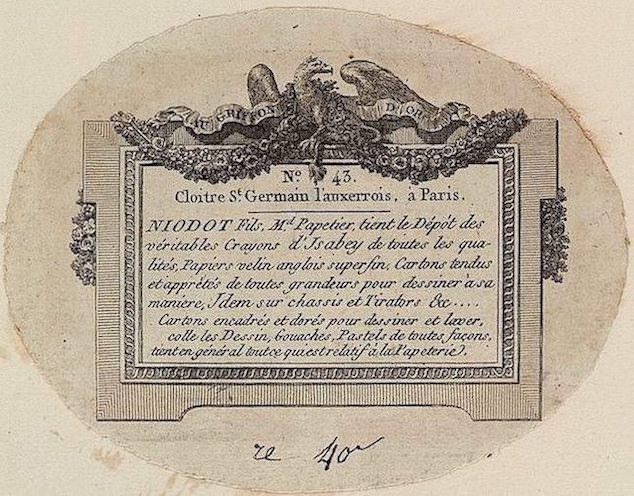 AU GRIFFON D'OR
N.º 43.
Cloitre S.t Germain l'auxerrois, à Paris.
NIODOT Fils, M.d Papetier, tient le Dépôt des
véritables Crayons d'Isabey de toutes les qua-
lités, Papiers velin anglois superfin, Cartons tendus
et apprêtés de toutes grandeurs pour dessiner à sa
manière, Idem sur chassis et Tirators &c....
Cartons encadrés et dorés pour dessiner et laver,
colle les Dessin, Gouaches, Pastels de toutes façons,
tient en général tout ce qui est relatif à la Papeterie.